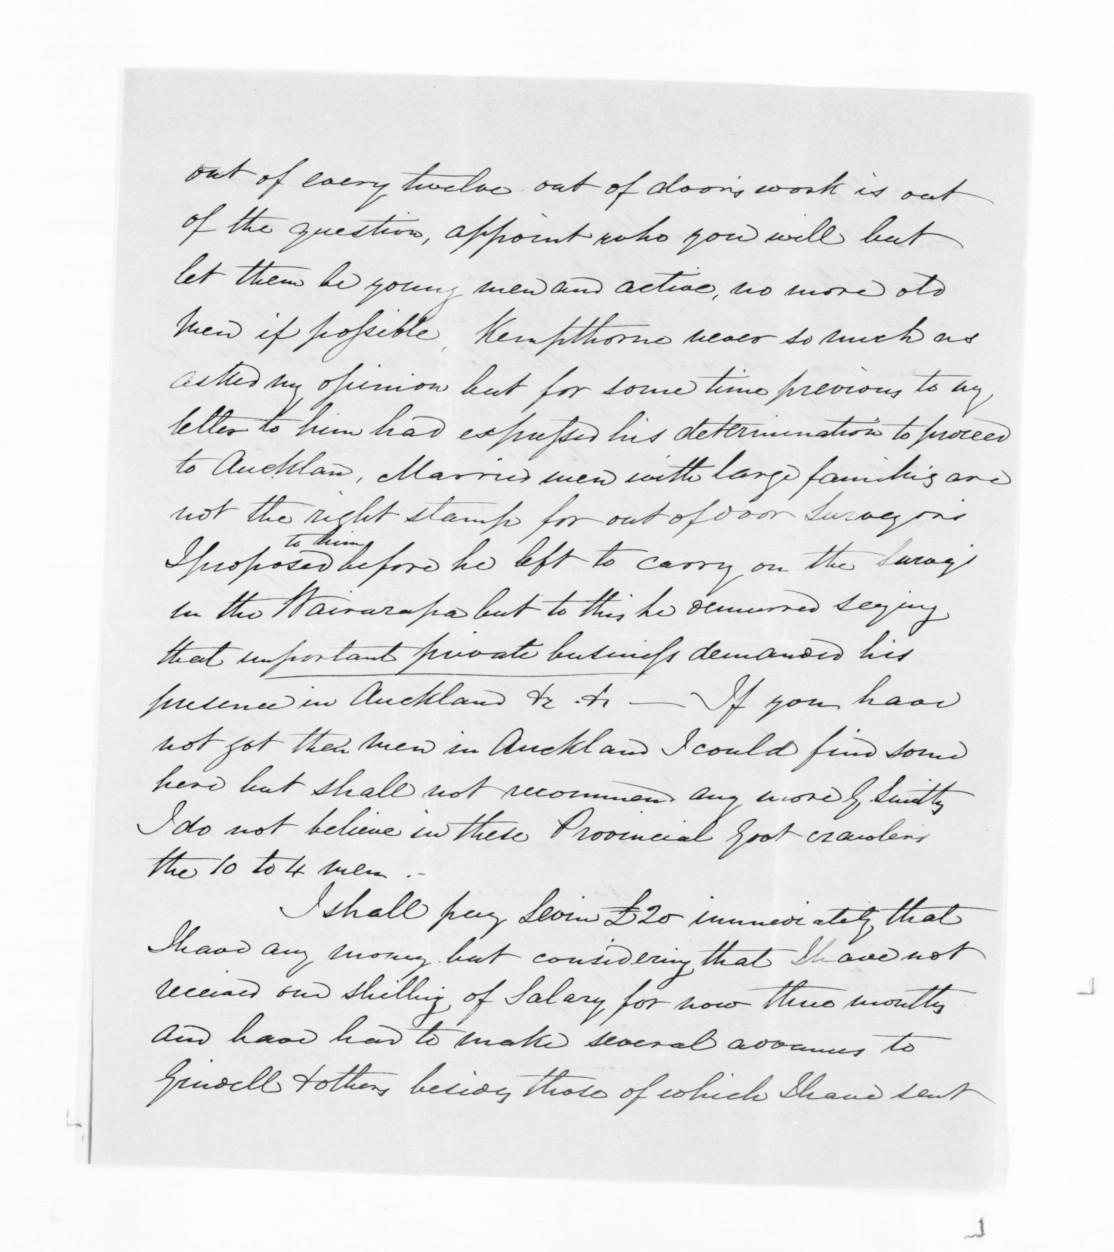 out of every twelve out of doors work is out
of the question, appoint who you will but
let them be young men and active, no more old
men if possible, Kempthorne never so much as
asked my opinion but for some time previous to my
letter to him had expressed his determination to proceed
to Auckland, Married men with large families are
not the right stamp for out of door surveyors
I proposed to him before he left to carry on the surveys
in the Wairarapa but to this he demurred saying
that important private business demanded his
presence in Auckland &c &c — If you have
not got the men in Auckland I could find some
here but shall not recommend any more G. Smiths
I do not believe in these Provincial Govt crawlers
the 10 to 4 men. -
I shall pay Levin £20 immediately that
I have any money but considering that I have not
received one shilling of Salary for now three months
and have had to make several advances to
Grindell & others besides those of which I have sent